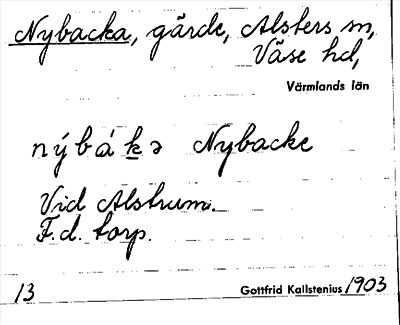 Nybacka, gärde, Alsters sn,
Väse hd,
Värmlands län
nýbákə Nybacke
Vid Alstrum.
F.d. torp.
13 Gottfrid Kallstenius 1903